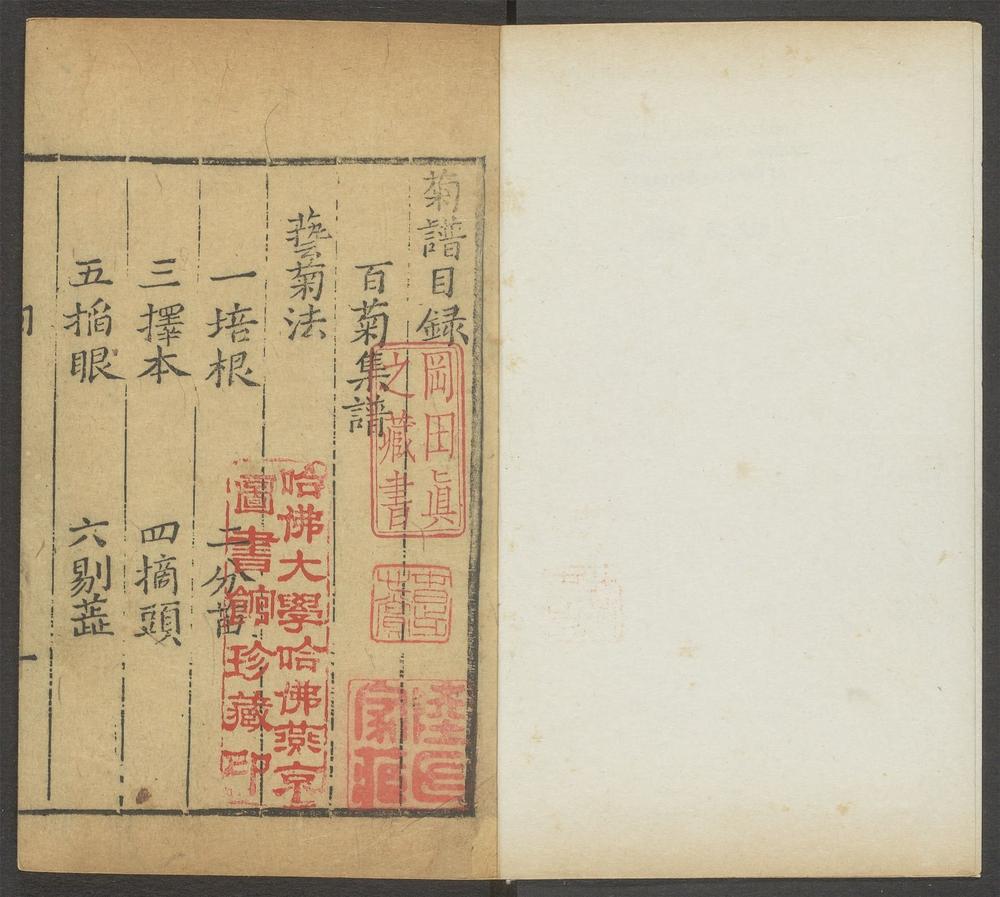 菊譜目録
百菊集譜
藝菊法
一培根
二分苗
三擇本
四摘頭
五掐眼
六剔蕋
岡田眞
之藏書
哈佛大學哈佛燕京
圖書館珍藏印